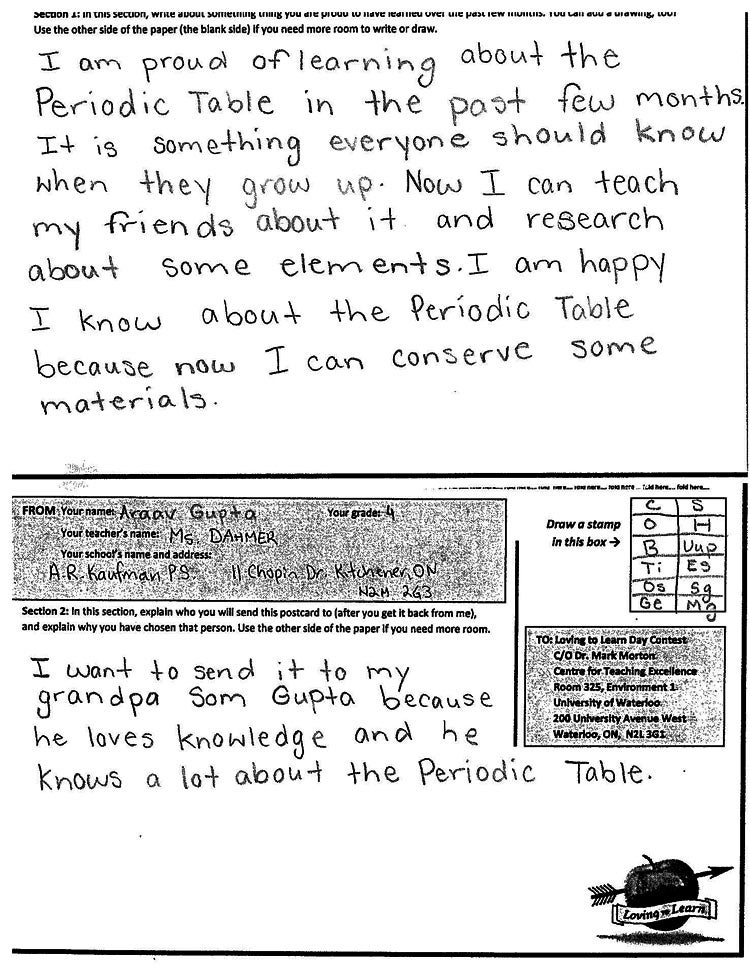 Section 1: In this section, write about something thing you are proud to have learned over the past few months. You can add a drawing, too!
Use the other side of the paper (the blank side) if you need more room to write or draw.
I am proud of learning about the
Periodic Table in the past few months.
It is something everyone should know
when they grow up. Now I can teach
my friends about it and research
about some elements. I am happy
I know about the Periodic Table
because now I can conserve some
materials.
fold here... fold here... fold here...
FROM Your name: Araav Gupta Your grade: 4
Your teacher's name: Ms. DAHMER
Your school's name and address:
A.R. Kaufman P.S. 11 Chopin Dr. Kitchener, ON
N2M 2G3
Draw a stamp
in this box →
C S
O H
B Uup
Ti Es
Os Sg
Ge Mg
Section 2: In this section, explain who you will send this postcard to (after you get it back from me),
and explain why you have chosen that person. Use the other side of the paper if you need more room.
I want to send it to my
grandpa Som Gupta because
he loves knowledge and he
knows a lot about the Periodic Table.
TO: Loving to Learn Day Contest
C/O Dr. Mark Morton
Centre for Teaching Excellence
Room 325, Environment 1
University of Waterloo
200 University Avenue West
Waterloo, ON, N2L 3G1
Loving to Learn